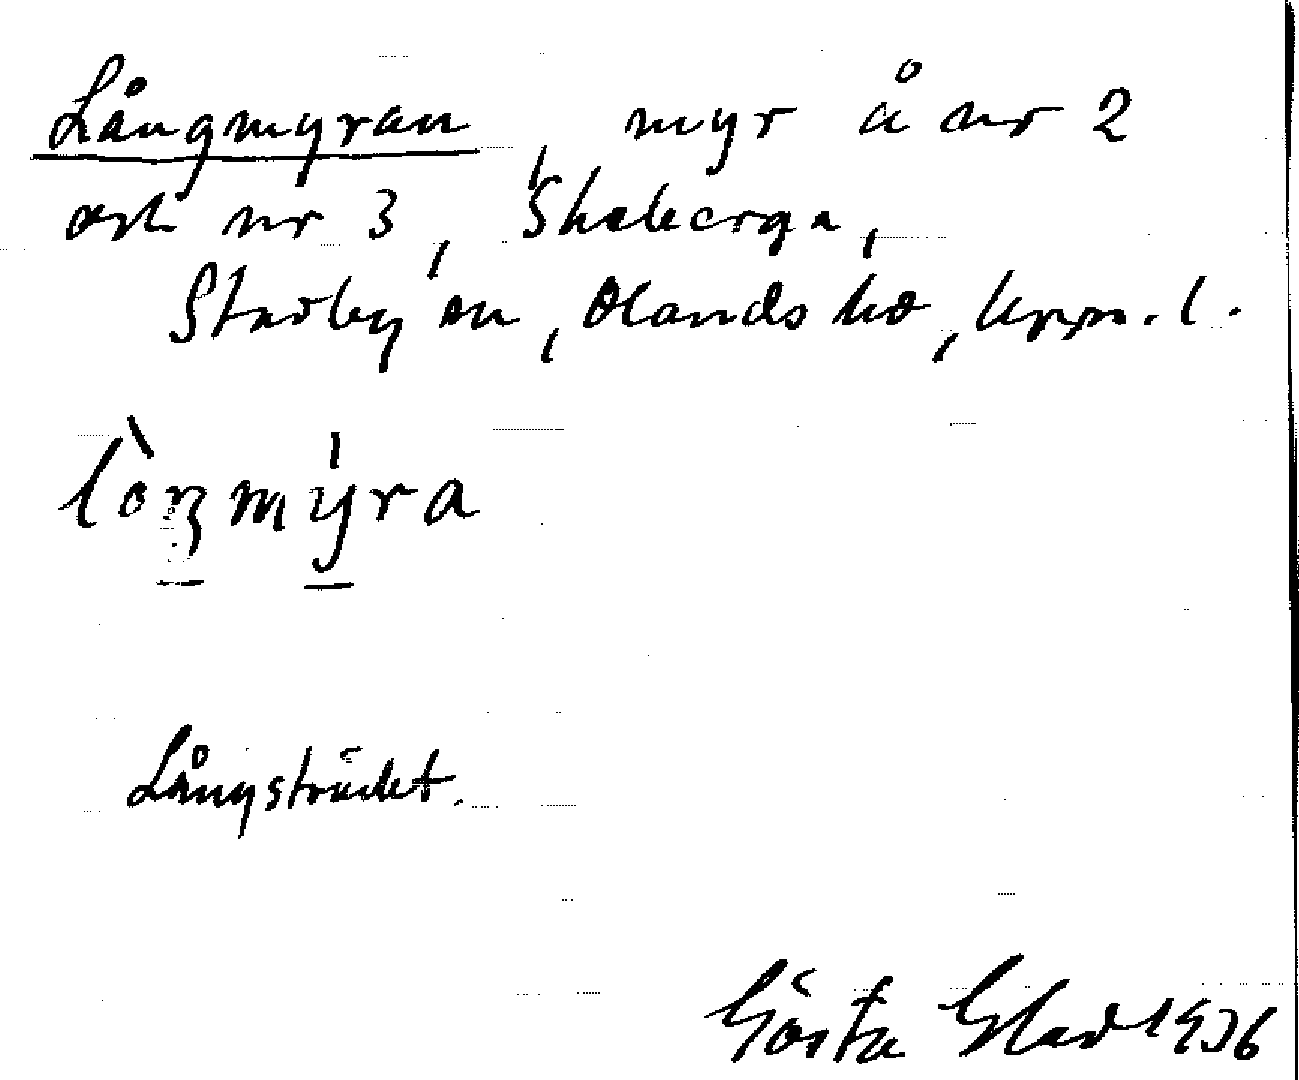 Långmyran, myr å nr 2
och nr 3, Skeberga,
Stavby sn, Olands hd, Upps. l.
lò̀ŋmýra
Långstrådet.
Gösta Glad 1936